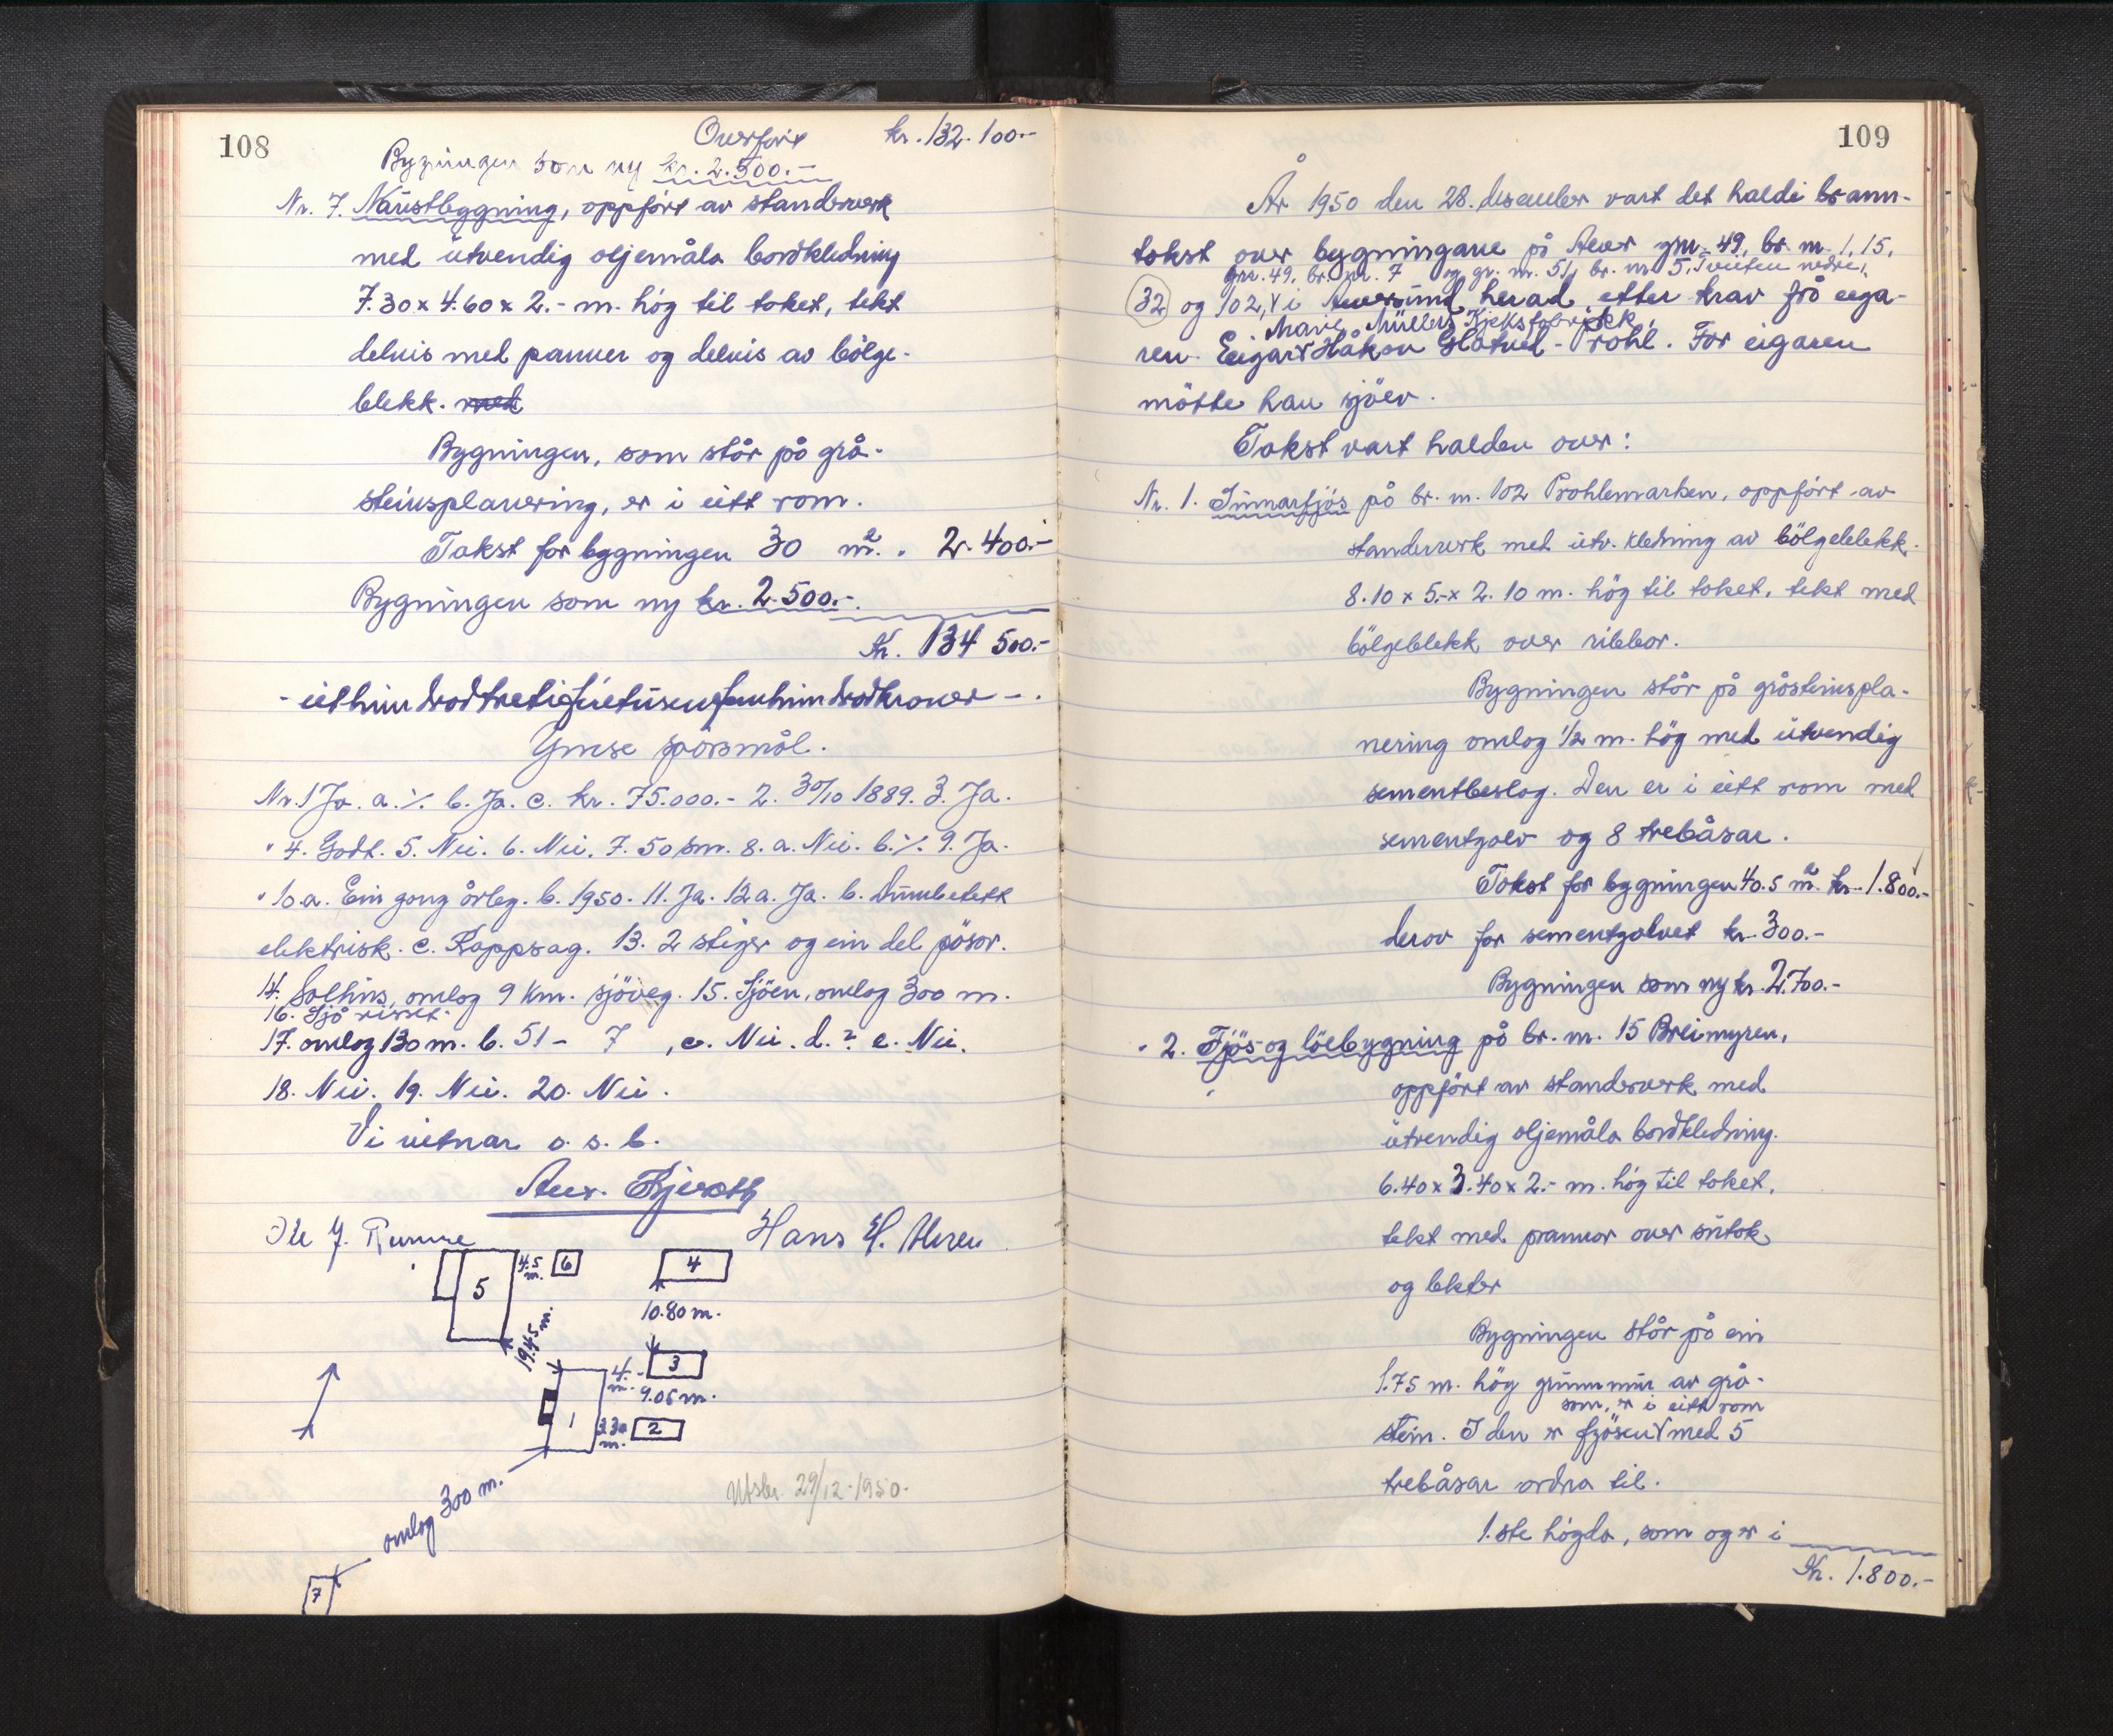 108
Overført kr. 132.100.-
Bygningen som ny kr. 2.500.-
Nr. 7. Naustbygning, oppført av standverk
med utvendig oljemåla bordkledning
7.30 x 4.60 x 2.- m. høg til taket, tekt
delvis med panner og delvis av bölge-
blekk. med
Bygningen, som står på grå-
steinsplanering, er i eitt rom.
Takst for bygningen 30 m². " 2.400.-
Bygningen som ny kr. 2.500.-
Kr. 134 500.-
- eithundradtrettifiretusenfemhundradkroner -.
Ymse spörsmål.
Nr. 1 Ja. a. ٪ b. Ja. c. kr. 75.000.- 2. 30/10 1889. 3. Ja.
" 4. Godt. 5. Nei. 6. Nei. 7. 50 m. 8. a. Nei. b. ٪ 9. Ja.
" 10.a. Ein gong årleg. b. 1950. 11. Ja. 12 a. Ja. b.
elektrisk. c. Kappsag. 13. 2 stiger og ein del pösar.
14. omlag 9 km. sjöveg. 15. Sjöen, omlag 300 m.
16. Sjå risset.
17. omlag 130 m. b. 51 - 7, c. Nei. d. ? e. Nei.
18. Nei. 19. Nei. 20. Nei.
Vi vitnar o. s. b.
Hans H.
5
4.5 m.
6
4
10.80 m.
19.45 m.
4. m.
3
9.05 m.
1
3.30 m.
2
omlag 300 m.
7
Utskr. 29/12-1950.
109
År 1950 den 28. desember vart det haldi brann-
takst over bygningane på Alver gnr. 49, br. nr. 1, 15,
gnr. 49, br. nr. 7 og gr. nr. 51, br. nr. 5, Tveiten nedre,
32 og 102, i Alversund herad etter krav frå eiga-
Marie Müllers Kjeksfabrikk,
ren. Eigar Håkon Glatved-Prahl. For eigaren
mötte han sjölv.
Takst vart halden over:
Nr. 1. Sumarfjös på br. nr. 102 Prahlemarken, oppfört av
standverk med utv. kledning av bölgeblekk.
8.10 x 5.- x 2.10 m. hög til taket, tekt med
bölgeblekk over ribbor.
Bygningen står på gråsteinspla-
nering omlag ½ m. hög med utvendig
sementbeslag. Den er i eitt rom med
sementgolv og 8 trebåsar.
Takst for bygningen 40.5 m². kr. 1.800.-
derav for sementgolvet kr. 300.-
Bygningen som ny kr. 2.700.-
" 2. Fjös og löebygning på br. nr. 15 Breimyren,
oppfört av standverk med
utvendig oljemåla bordkledning.
6.40 x 3.40 x 2.- m. hög til taket,
tekt med pannor over sutak
og lekter
Bygningen står på ein
1.75 m. hög grunnmur av grå-
som, er i eitt rom
stein. I den er fjösen med 5
trebåsar ordna til.
1.ste högda, som og er i
Kr. 1.800.-